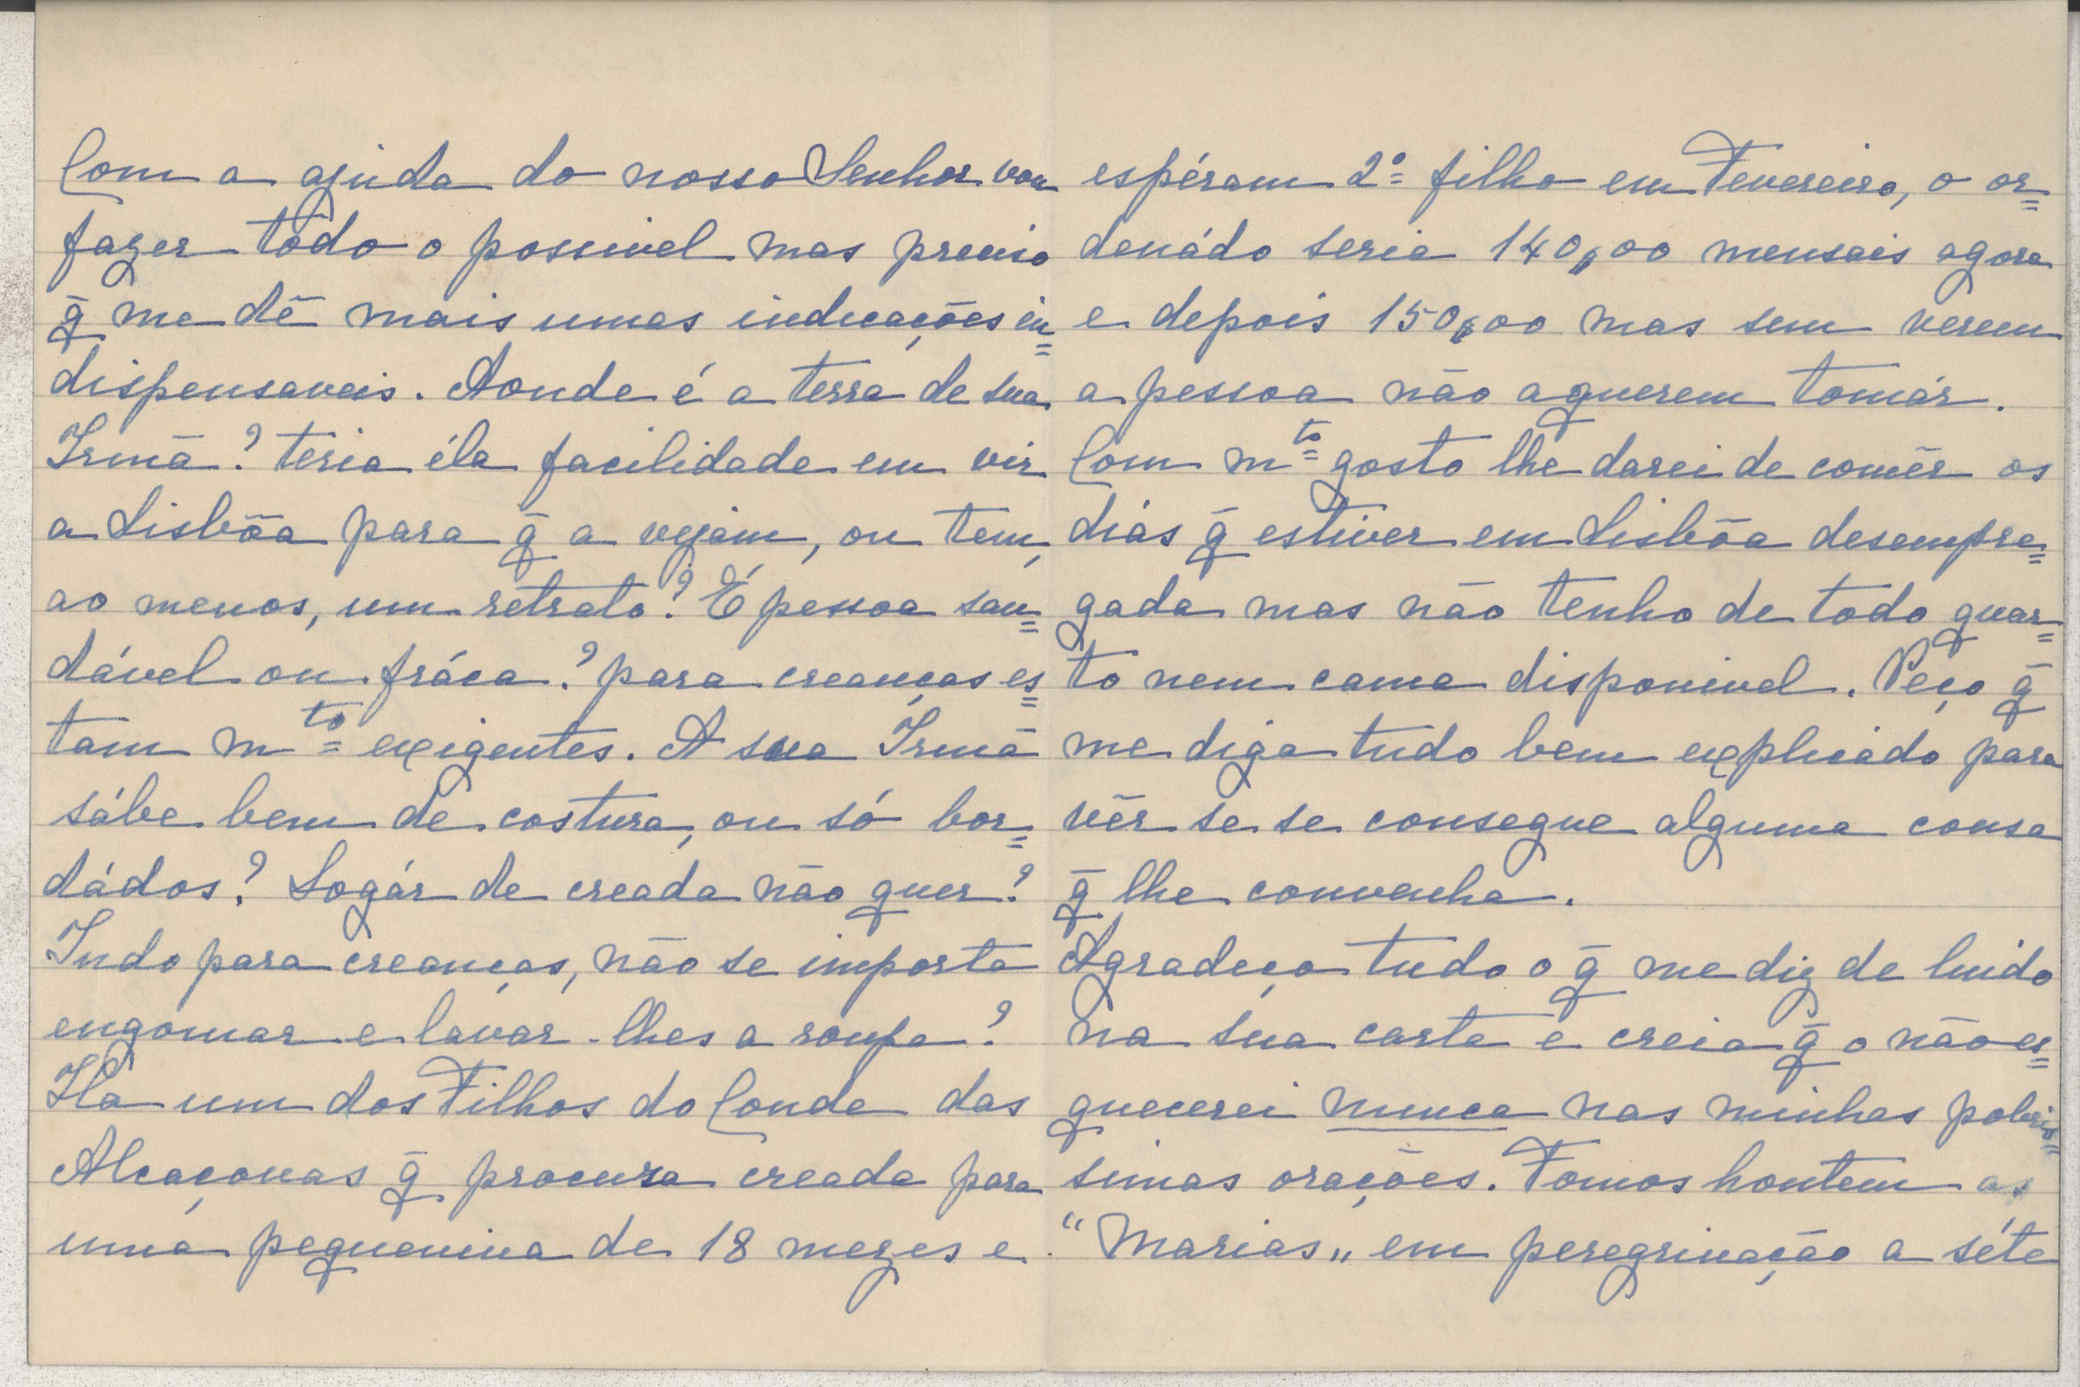 Com a ajuda do nosso Senhor vou
fazer tôdo o possivel mas preciso
q̄ me dê mais umas indicações in=
dispensaveis. Aonde é a terra de sua
Irmã? teria éla facilidade em vir
a Lisbôa para q̄ a vejam, ou tem,
ao menos, um retrato? É pessoa sau=
dável ou fráca? para creanças es=
tam mto exigentes. A sua Irmã
sábe bem de costura, ou só bor=
dádos? Logár de creada não quer?
Indo para creanças, não se importa
engomar e lavar-lhes a roupa?
Ha um dos Filhos do Conde das
Alcaçovas q̄ procura creada para
uma pequenina de 18 mezes e
espéram 2º filho em Fevereiro, o or=
denádo seria 140$00 mensais agora
e depois 150$00 mas sem verem
a pessoa não a querem tomár.
Com mto gosto lhe darei de comêr os
dias q̄ estiver em Lisbôa desempre=
gada mas não tenho de todo quar=
to nem cama disponivel. Peço q̄
me diga tudo bem explicádo para
vêr se se consegue alguma cousa
q̄ lhe convenha.
Agradeço tudo o q̄ me diz de lindo
na sua carta e creia q̄ o não es=
quecerei nunca nas minhas pobris=
simas orações. Fomos hontem as
"Marias" em peregrinação a séte